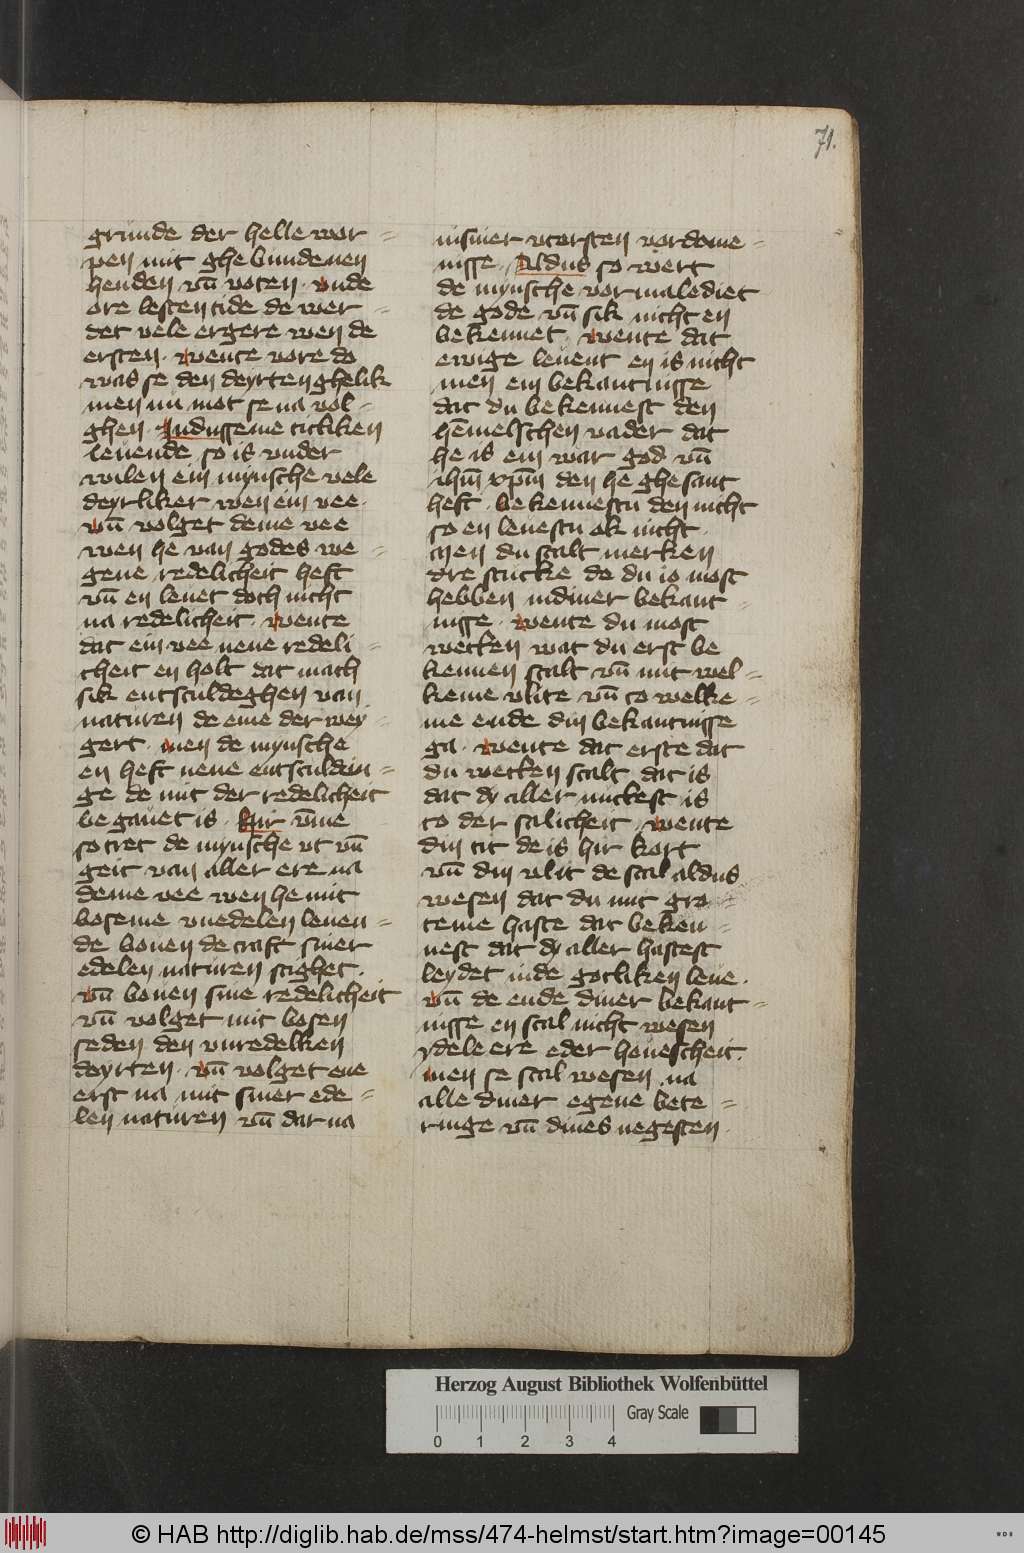 71.
grunde der helle wor =
pen mit ghebundenen
henden vn̄ voten · vnde
ore lesten tide de wer =
det vele ergere wen de
ersten · wente vore do
was se den deyrten ghelik
men nu mot se na vol =
ghen · In dusseme cickken
leuende so is vnder
wilen ein mynsche vele
deyrliker wen ein vee ·
vn̄ volget deme vee
wen he van godes we =
gene redelicheit heft
vn̄ en leuet doch nicht
na redelicheit · wente
dat ein vee nene redeli =
cheit en holt dat mach
sik entsculdeghen van
naturen de eme der wey =
gert · men de mynsche
en heft nene entsculdin =
ge de mit der redelicheit
begauet is · Hir vm̄e
so tret de mynsche vt vn̄
geit van aller ere na
deme vee wen he mit
boseme vnedelen leuen =
de bouen de craft siner
edelen naturen stighet ·
vn̄ bouen sine redelicheit
vn̄ volget mit bosen
seden den vnredelken
deyrten · vn̄ volget eme
erst na mit siner ede =
len naturen vn̄ dar na
in siner vtorsten vordome =
nisse · Aldus so wert
de mynsche vormalediet
de gode vn̄ sik nicht en
bekennet · wente dat
ewige leuent en is nicht
men ein bekantnisse
dat du bekennest den
hēmelschen vader dat
he is ein war god vn̄
ihm̄ xpm̄ den he ghesant
heft · bekennestu den nicht
so en leuestu ok nicht ·
Men du scalt merken
dre stucke de du io most
hebben in diner bekant =
nisse · wente du most
weten wat du erst be
kennen scalt vn̄ mit wel =
keme vlite vn̄ to welke =
me ende din bekantnisse
ga · wente dat erste dat
du weten scalt dat is
dat dy aller nuttest is
to der salicheit · wente
din tit de is hir kort
vn̄ din vlit de scal aldus
wesen dat du mit gro =
teme haste dat beken =
nest dat dy aller hastest
leydet in de gotliken leue ·
vn̄ de ende diner bekant =
nisse en scal nicht wesen
ydele ere eder houescheit ·
men se scal wesen na
alle diner egene bete =
ringe vn̄ dines negesten ·
Herzog August Bibliothek Wolfenbüttel
Gray Scale
0 1 2 3 4
© HAB http://diglib.hab.de/mss/474-helmst/start.htm?image=00145